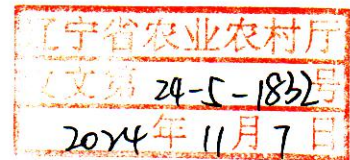 辽宁省农业农村厅
文第 24-5-1832号
2024年11月7日